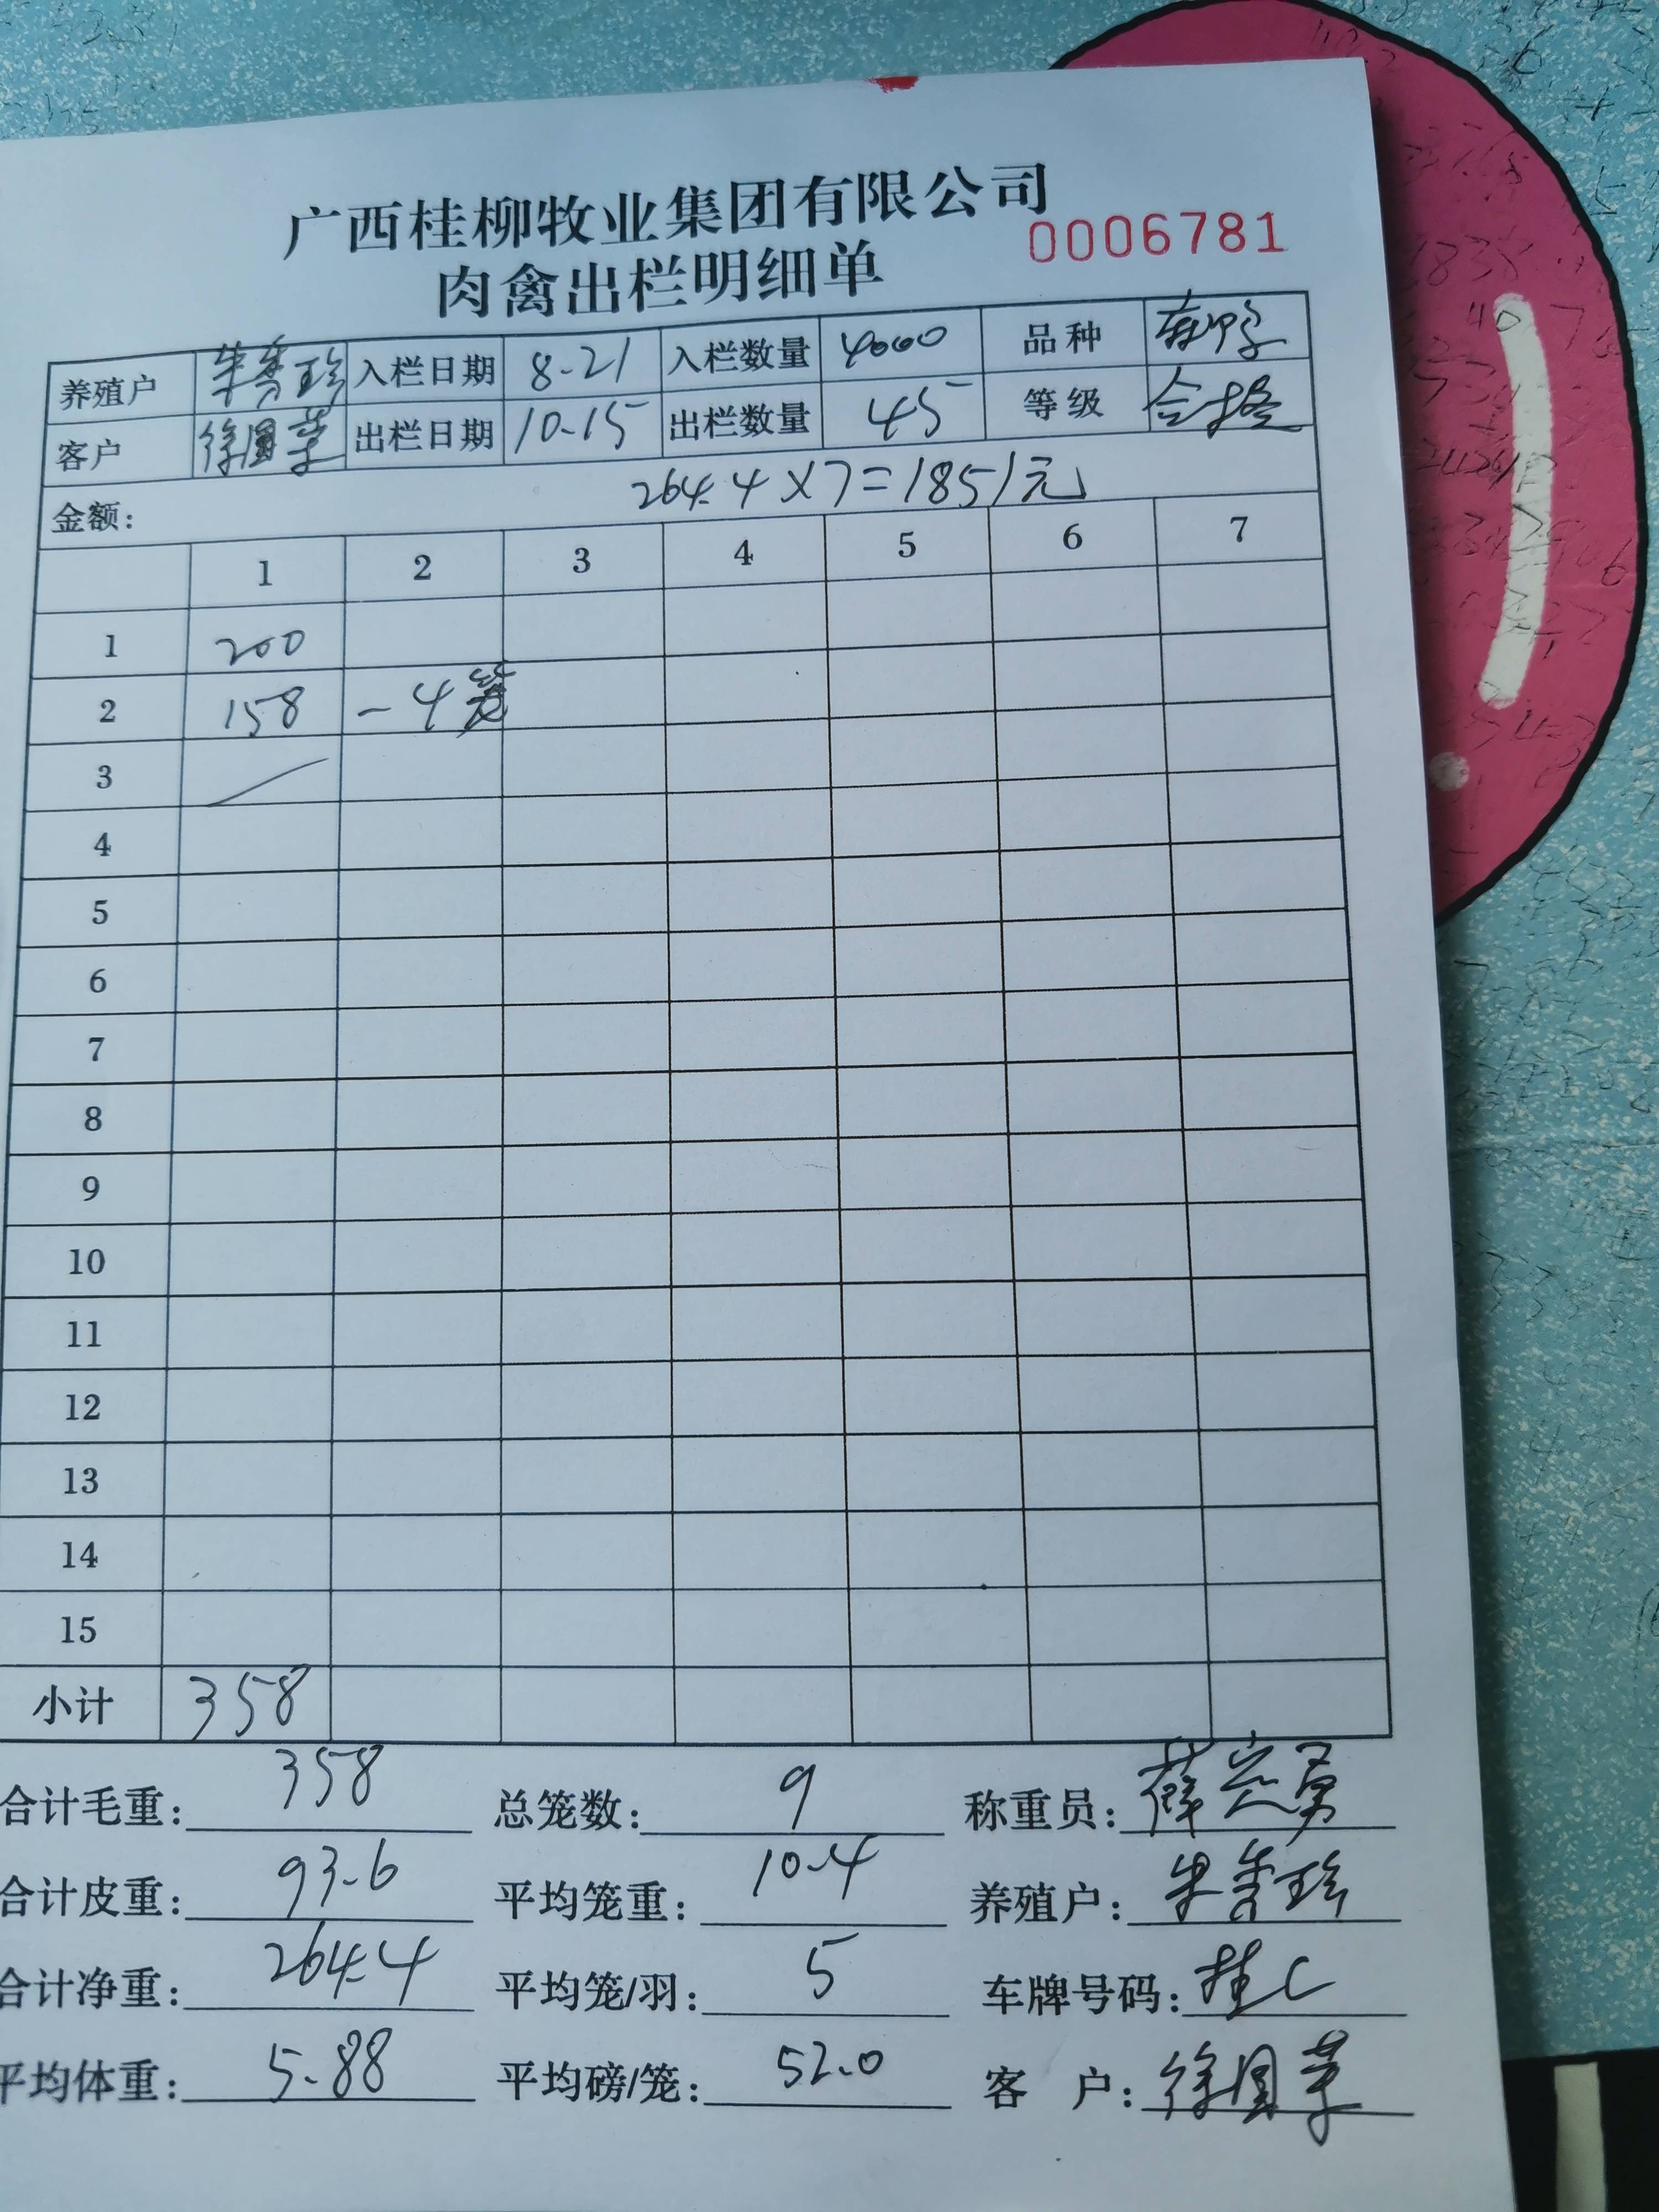 广西桂柳牧业集团有限公司
0006781
肉禽出栏明细单
养殖户 朱秀珍 入栏日期 8-21 入栏数量 4000 品种
客户 徐国 出栏日期 10-15 出栏数量 45 等级 合格
金额: 264.4×7=1851元
1 2 3 4 5 6 7
1 200
2 158 -4笼
3
4
5
6
7
8
9
10
11
12
13
14
15
小计 358
合计毛重: 358 总笼数: 9 称重员: 薛
合计皮重: 93.6 平均笼重: 10.4 养殖户: 朱秀珍
合计净重: 264.4 平均笼/羽: 5 车牌号码: 桂C
平均体重: 5.88 平均磅/笼: 52.0 客 户: 徐国